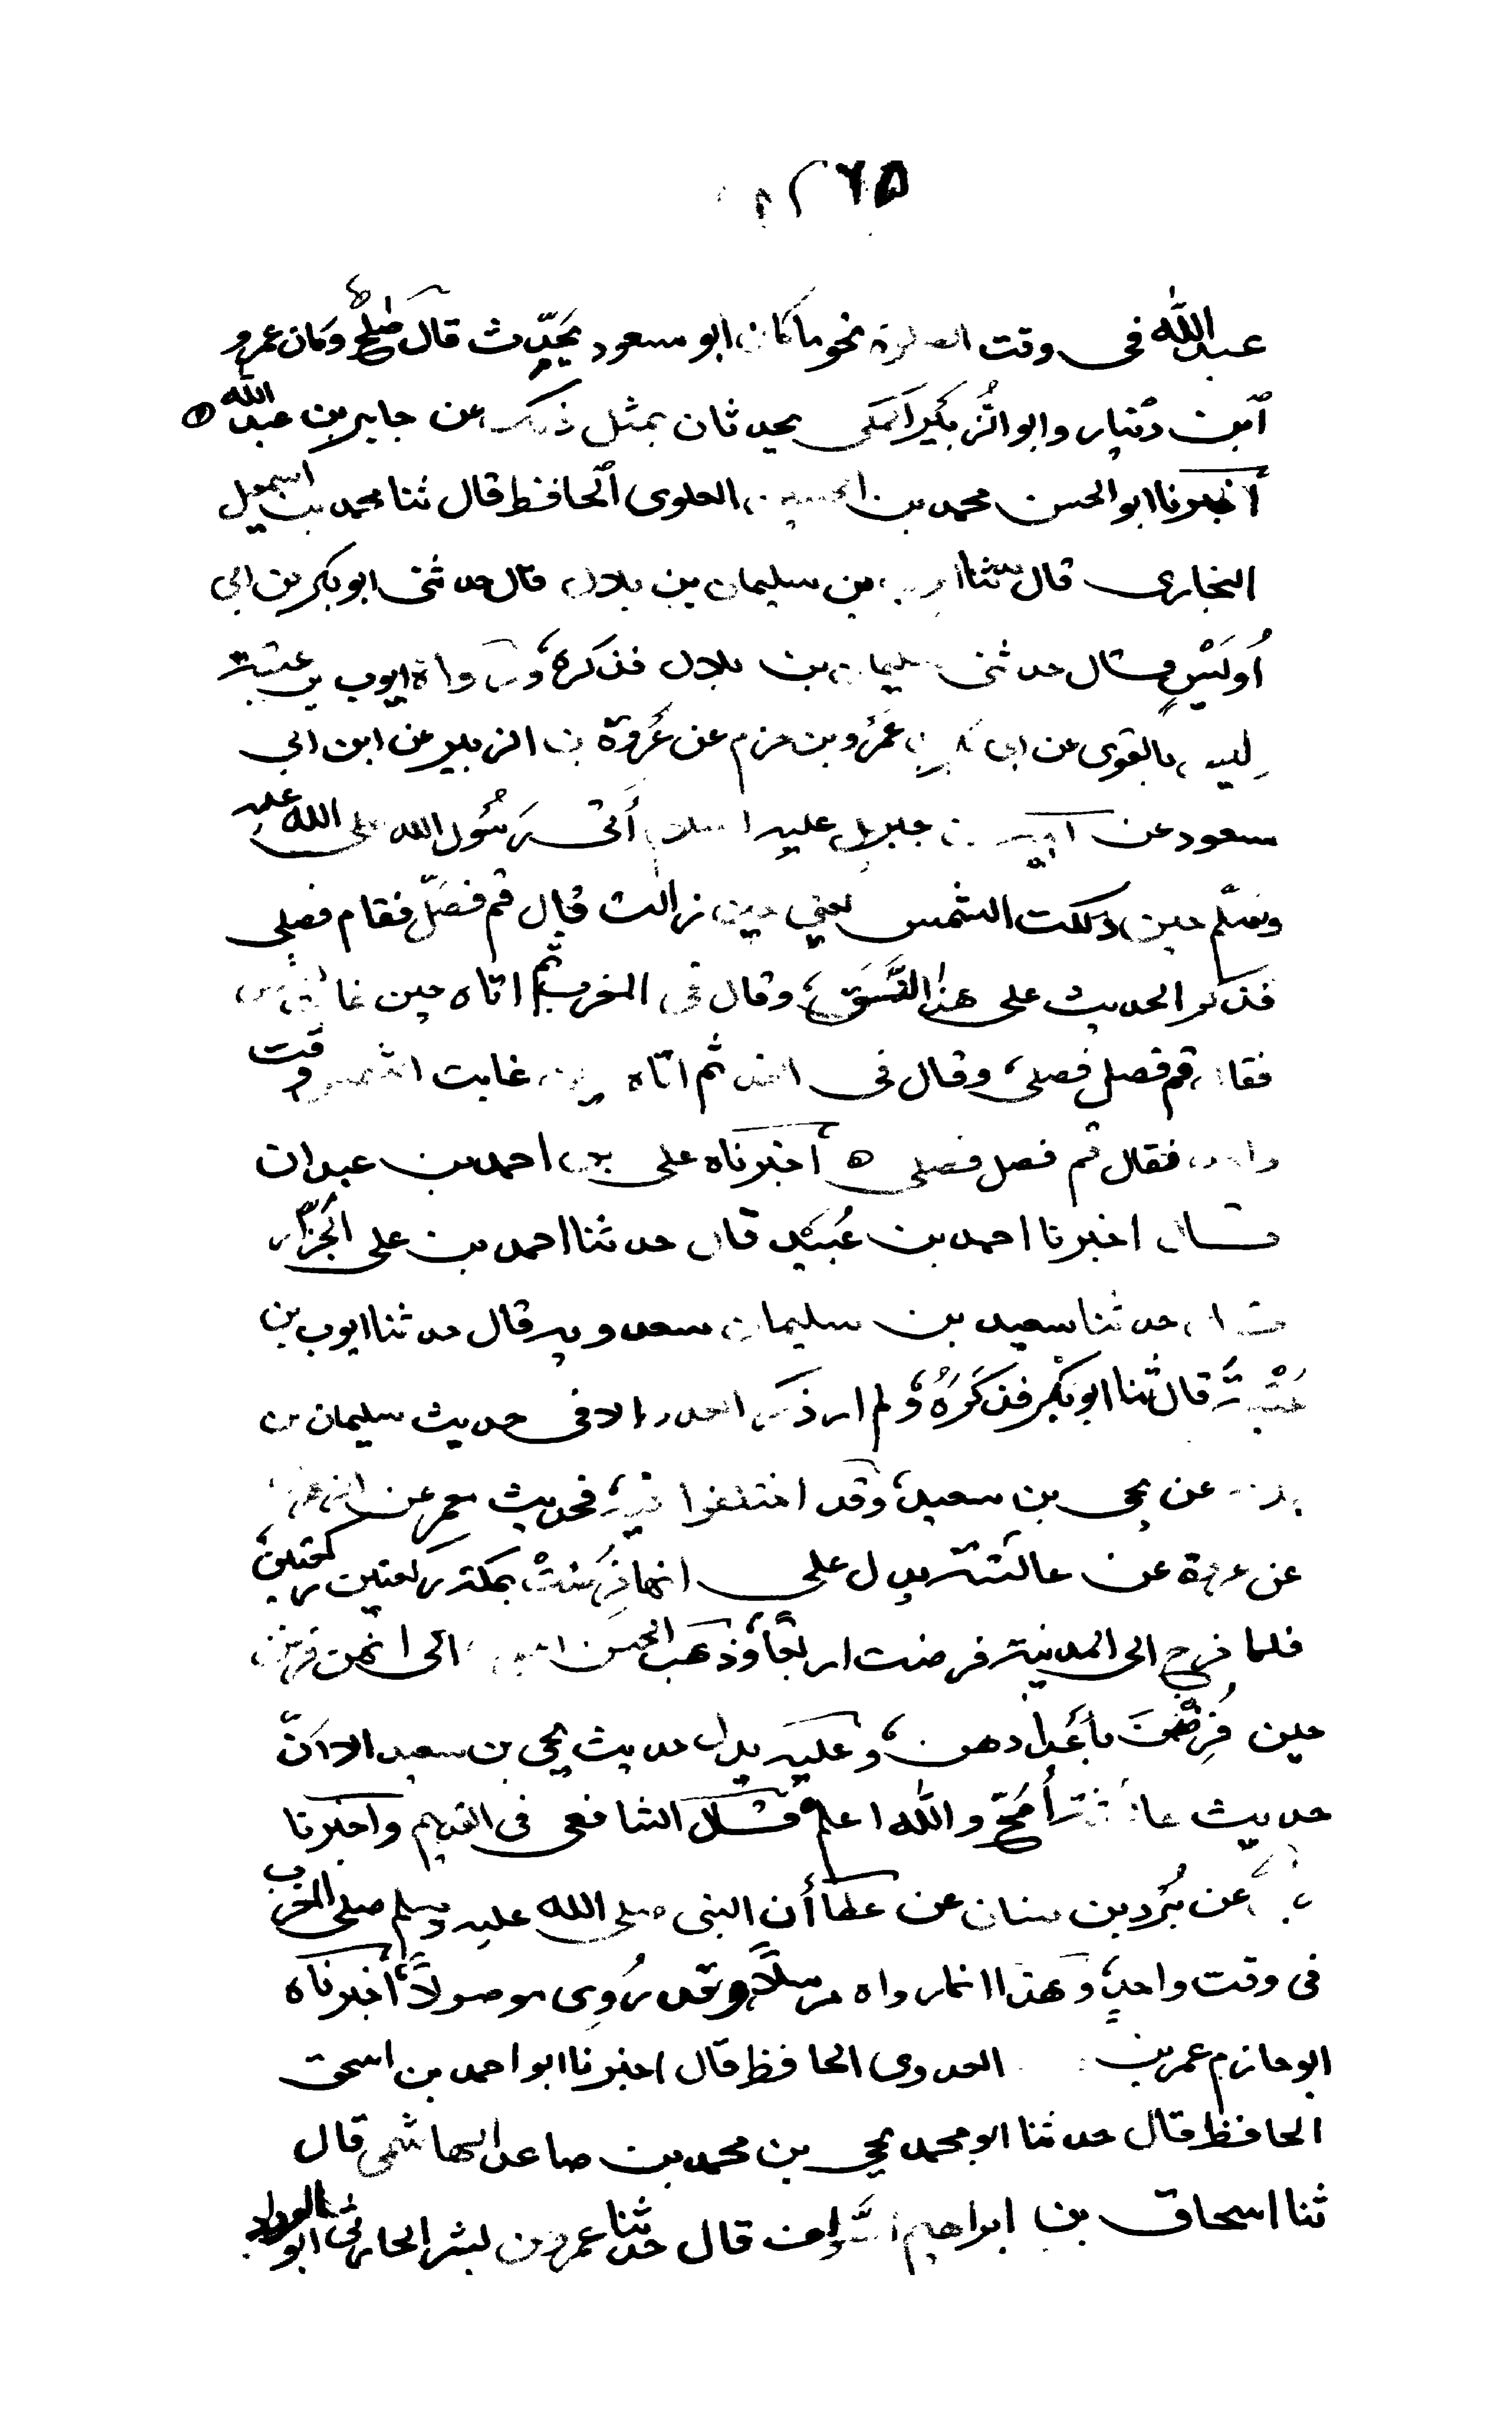 ٢٦٥
عبد الله فى وقت الصلوة نحو ما كان ابو مسعود يحدّث قال صلح وكان عمرو
ابن دينار وابو الزبير المكى يحدثان بمثل ذلك عن جابر بن عبد الله ه
أخبرنا ابو الحسن محمد بن الحسين العلوى الحافظ قال ثنا محمد بن اسمعيل
البخارى قال ثنا ايوب بن سليمان بن بلال قال حدثنى ابو بكر بن ابى
أُوَيْسٍ قال حدثنى سليمان بن بلال فذكره ورواه ايوب بن عتبة
ليس بالقوى عن ابى بكر بن عمرو بن حزم عن عروة بن الزبير عن ابن ابى
مسعود عن ابيه ان جبريل عليه السلام أتى رسُول الله صلى الله عليه
وسلم حين دلكت الشمس يعني حين زالت فقال قم فصلّ فقام فصلى
فذكر الحديث على هذا النَّسَق وقال فى المغرب ثم اتاه حين غابت الشمس
فقال قم فصل فصلى وقال فى الغد ثم اتاه حين غابت الشمس وقت
واحد فقال قم فصل فصلى ه أخبرناه على بن احمد بن عبدان
قال اخبرنا احمد بن عُبَيْد قال حدثنا احمد بن على الجزّار
قال حدثنا سعيد بن سليمان سعدويه قال حدثنا ايوب بن
عُتْبَة قال ثنا ابو بكر فذكَرَهُ ولم ار ذكر العدد الا فى حديث سليمان بن
بلال عن يحى بن سعيد وقد اختلفوا فيه فحديث معمر عن الزهرى
عن عروة عن عائشة يدل على انها فُرِضَتْ بمكة ركعتين ركعتين
فلما خرج الى المدينة فرضت اربعًا وذهب الحسن البصرى الى انهن فرضن
حين فُرِضْنَ بأعدادهن وعليه يدل حديث يحى بن سعيد الا انّ
حديث عائشة أصَحّ والله اعلم قال الشافعى فى القديم واخبرنا
عن بُرد بن سنان عن عطا أن النبى صلى الله عليه وسلم صلى المغرب
فى وقت واحدٍ وهذا انما رواه مرسلًا وقد رُوِى موصولًا أخبرناه
ابو حازم عمر بن العبدوى الحافظ قال اخبرنا ابو احمد بن اسحق
الحافظ قال حدثنا ابو محمد يحى بن محمد بن صاعد الهاشمى قال
ثنا اسحاق بن ابراهيم الصواف قال حدثنا عمرو بن بشر الحارثى ابو الرداد